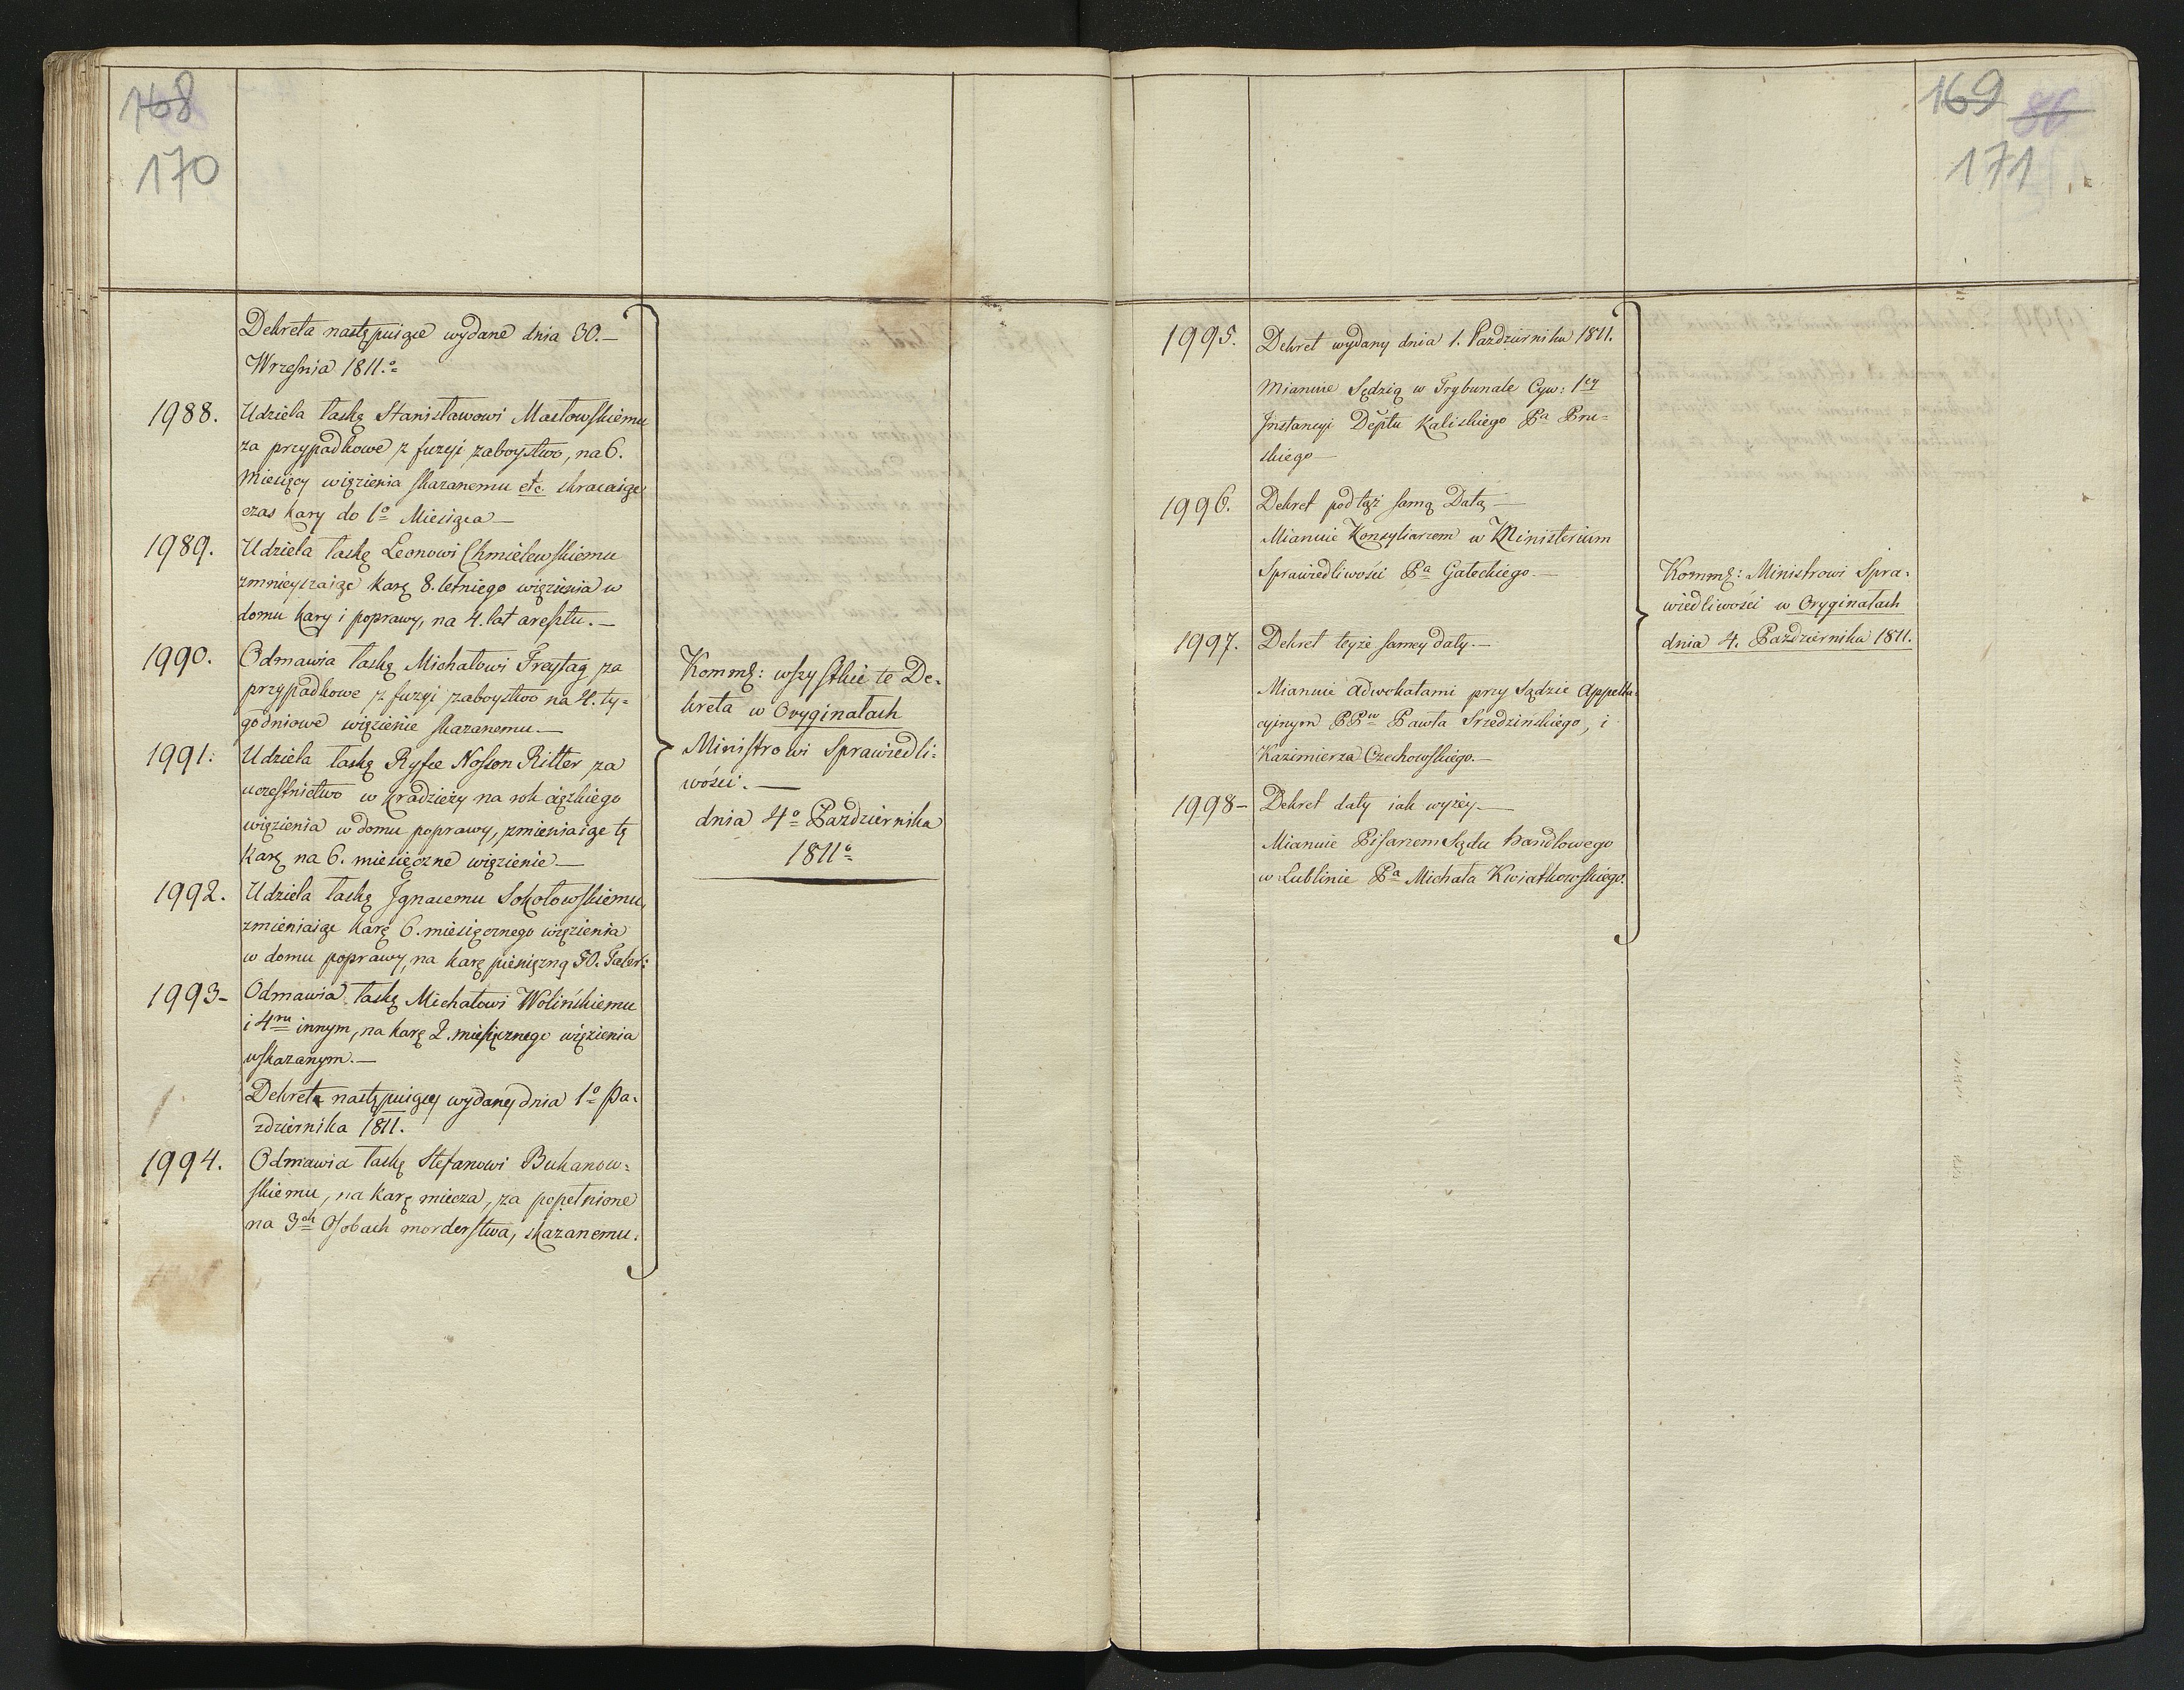 168
170
Dekreta następuiące wydane dnia 30.—
Września 1811.o
1988. Udziela łaskę Stanisławowi Masłowskiemu
za przypadkowe z fuzyi zaboystwo, na 6.
Miesięcy więzienia skazanemu etc. skracaiąc
czas kary do 1o Miesiąca—
1989. Udziela łaskę Leonowi Chmielewskiemu
zmnieyszaiąc karę 8. letniego więzienia w
domu kary i poprawy, na 4. lat aresztu.—
1990. Odmawia łaskę Michałowi Freytag za
przypadkowe z fuzyi zaboystwo na 4. ty=
godniowe więzienie skazanemu—
1991: Udziela łaskę Ryfce Noson Ritter za
uczestnictwo w kradzieży na rok ciężkiego
więzienia w domu poprawy, zmieniaiąc tę
karę na 6. miesięczne więzienie—
1992. Udziela łaskę Ignacemu Sokołowskiemu,
zmieniaiąc karę 6. miesięcznego więzienia
w domu poprawy, na karę pieniężną 50. Taler:
1993— Odmawia łaskę Michałowi Wolińskiemu
i 4ru innym, na karę 2. miesięcznego więzienia
wskazanym.—
Dekreta następuiący wydany dnia 1o Pa=
ździernika 1811.
1994. Odmawia łaskę Stefanowi Bukanow=
skiemu, na karę miecza, za popełnione
na 3ch Osobach morderstwa, skazanemu.
Komm: wszystkie te De=
kreta w Oryginałach
Ministrowi Sprawiedli=
wości.—
dnia 4o Października
1811o
169 86
171
1995. Dekret wydany dnia 1. Października 1811.
Mianuie Sędzią w Trybunale Cyw: 1ey
Instancyi Deptu Kaliskiego Pa Pru=
skiego—
1996. Dekret pod tąż samą Datą—
Mianuie Konsyliarzem w Ministerium
Sprawiedliwości Pa Gałeckiego.—
1997. Dekret teyże samey daty.—
Mianuie Adwokatami przy Sądzie Appella=
cyinym PPw Pawła Srzedzińskiego, i
Kazimierza Czechowskiego.—
1998— Dekret daty iak wyżey.—
Mianuie Pisarzem Sądu handlowego
w Lublinie Pa Michała Kwiatkowskiego.
Komm: Ministrowi Spra=
wiedliwości w Oryginałach
dnia 4. Października 1811.